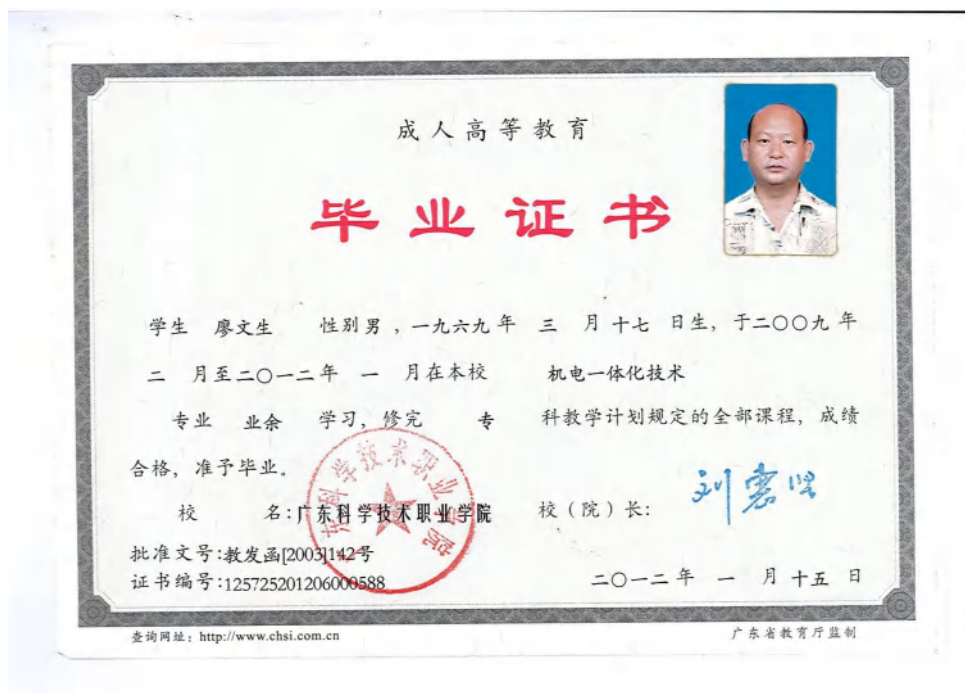 成人高等教育
毕业证书
学生 廖文生 性别男，一九六九年 三 月十七 日生，于二〇〇九年
二 月至二〇一二年 一 月在本校 机电一体化技术
专业 业余 学习，修完 专 科教学计划规定的全部课程，成绩
合格，准予毕业。
校 名：广东科学技术职业学院 校（院）长：
批准文号：教发函[2003]142号
证书编号：125725201206000588 二〇一二年 一 月十五 日
查询网址：http://www.chsi.com.cn 广东省教育厅监制